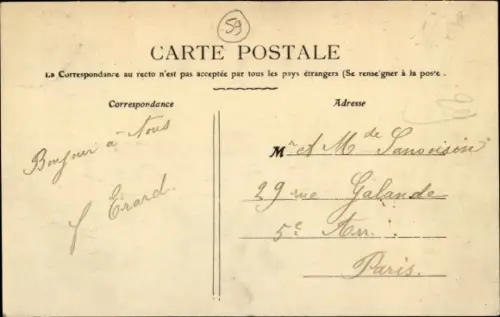 59
CARTE POSTALE
La Correspondance au recto n'est pas acceptée par tous les pays étrangers (Se renseigner à la poste.
Correspondance
Adresse
Bonjour à Tous
Erard.
Mr et Mde Sanoisin
29 rue Galande
5e Arr.
Paris.